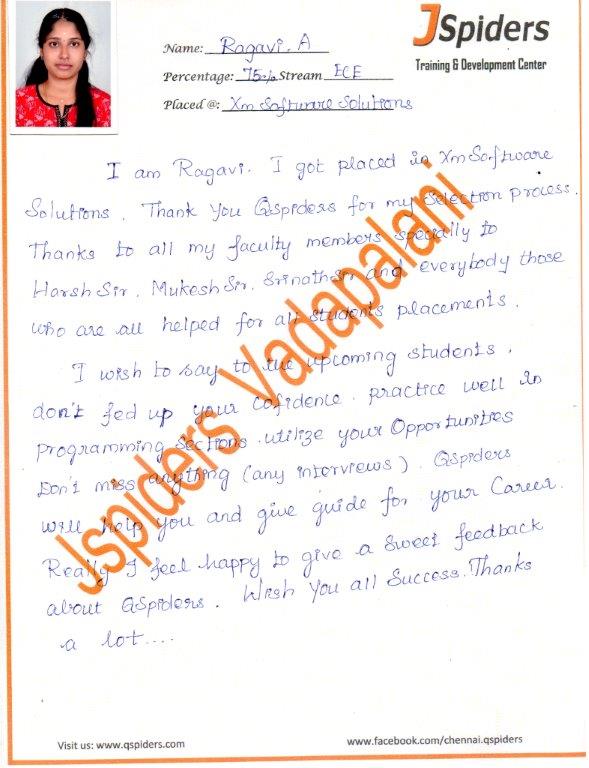 JSpiders
Training & Development Center
Name: Ragavi. A
Percentage: 75% Stream ECE
Placed @: Xm Software Solutions
I am Ragavi. I got placed in Xm Software
Solutions. Thank You Qspiders for my Selection process.
Thanks to all my faculty members specially to
Harsh Sir, Mukesh Sir, Srinath Sir and everybody those
who are all helped for all students placements.
I wish to say to the upcoming students,
don't fed up your cofidence. practice well in
programming sections. utilize your Opportunities
Don't miss anything (any interviews). Qspiders
will help you and give guide for your Career.
Really I feel happy to give a Sweet feedback
about QSpiders. Wish You all Success. Thanks
a lot....
Jspiders Vadapalani
Visit us: www.qspiders.com
www.facebook.com/chennai.qspiders